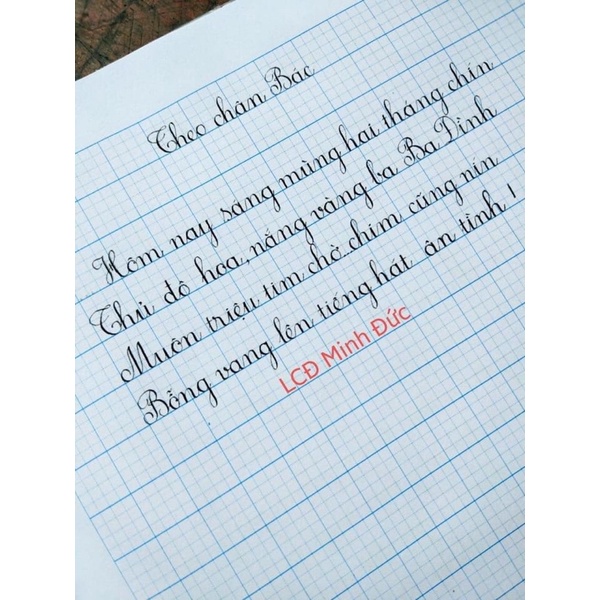 Theo chân Bác
Hôm nay sáng mùng hai tháng chín
Thủ đô hoa, nắng vàng ba Ba Đình
Muôn triệu tim chờ...chim cũng nín
Bỗng vang lên tiếng hát ân tình!
LCĐ Minh Đức